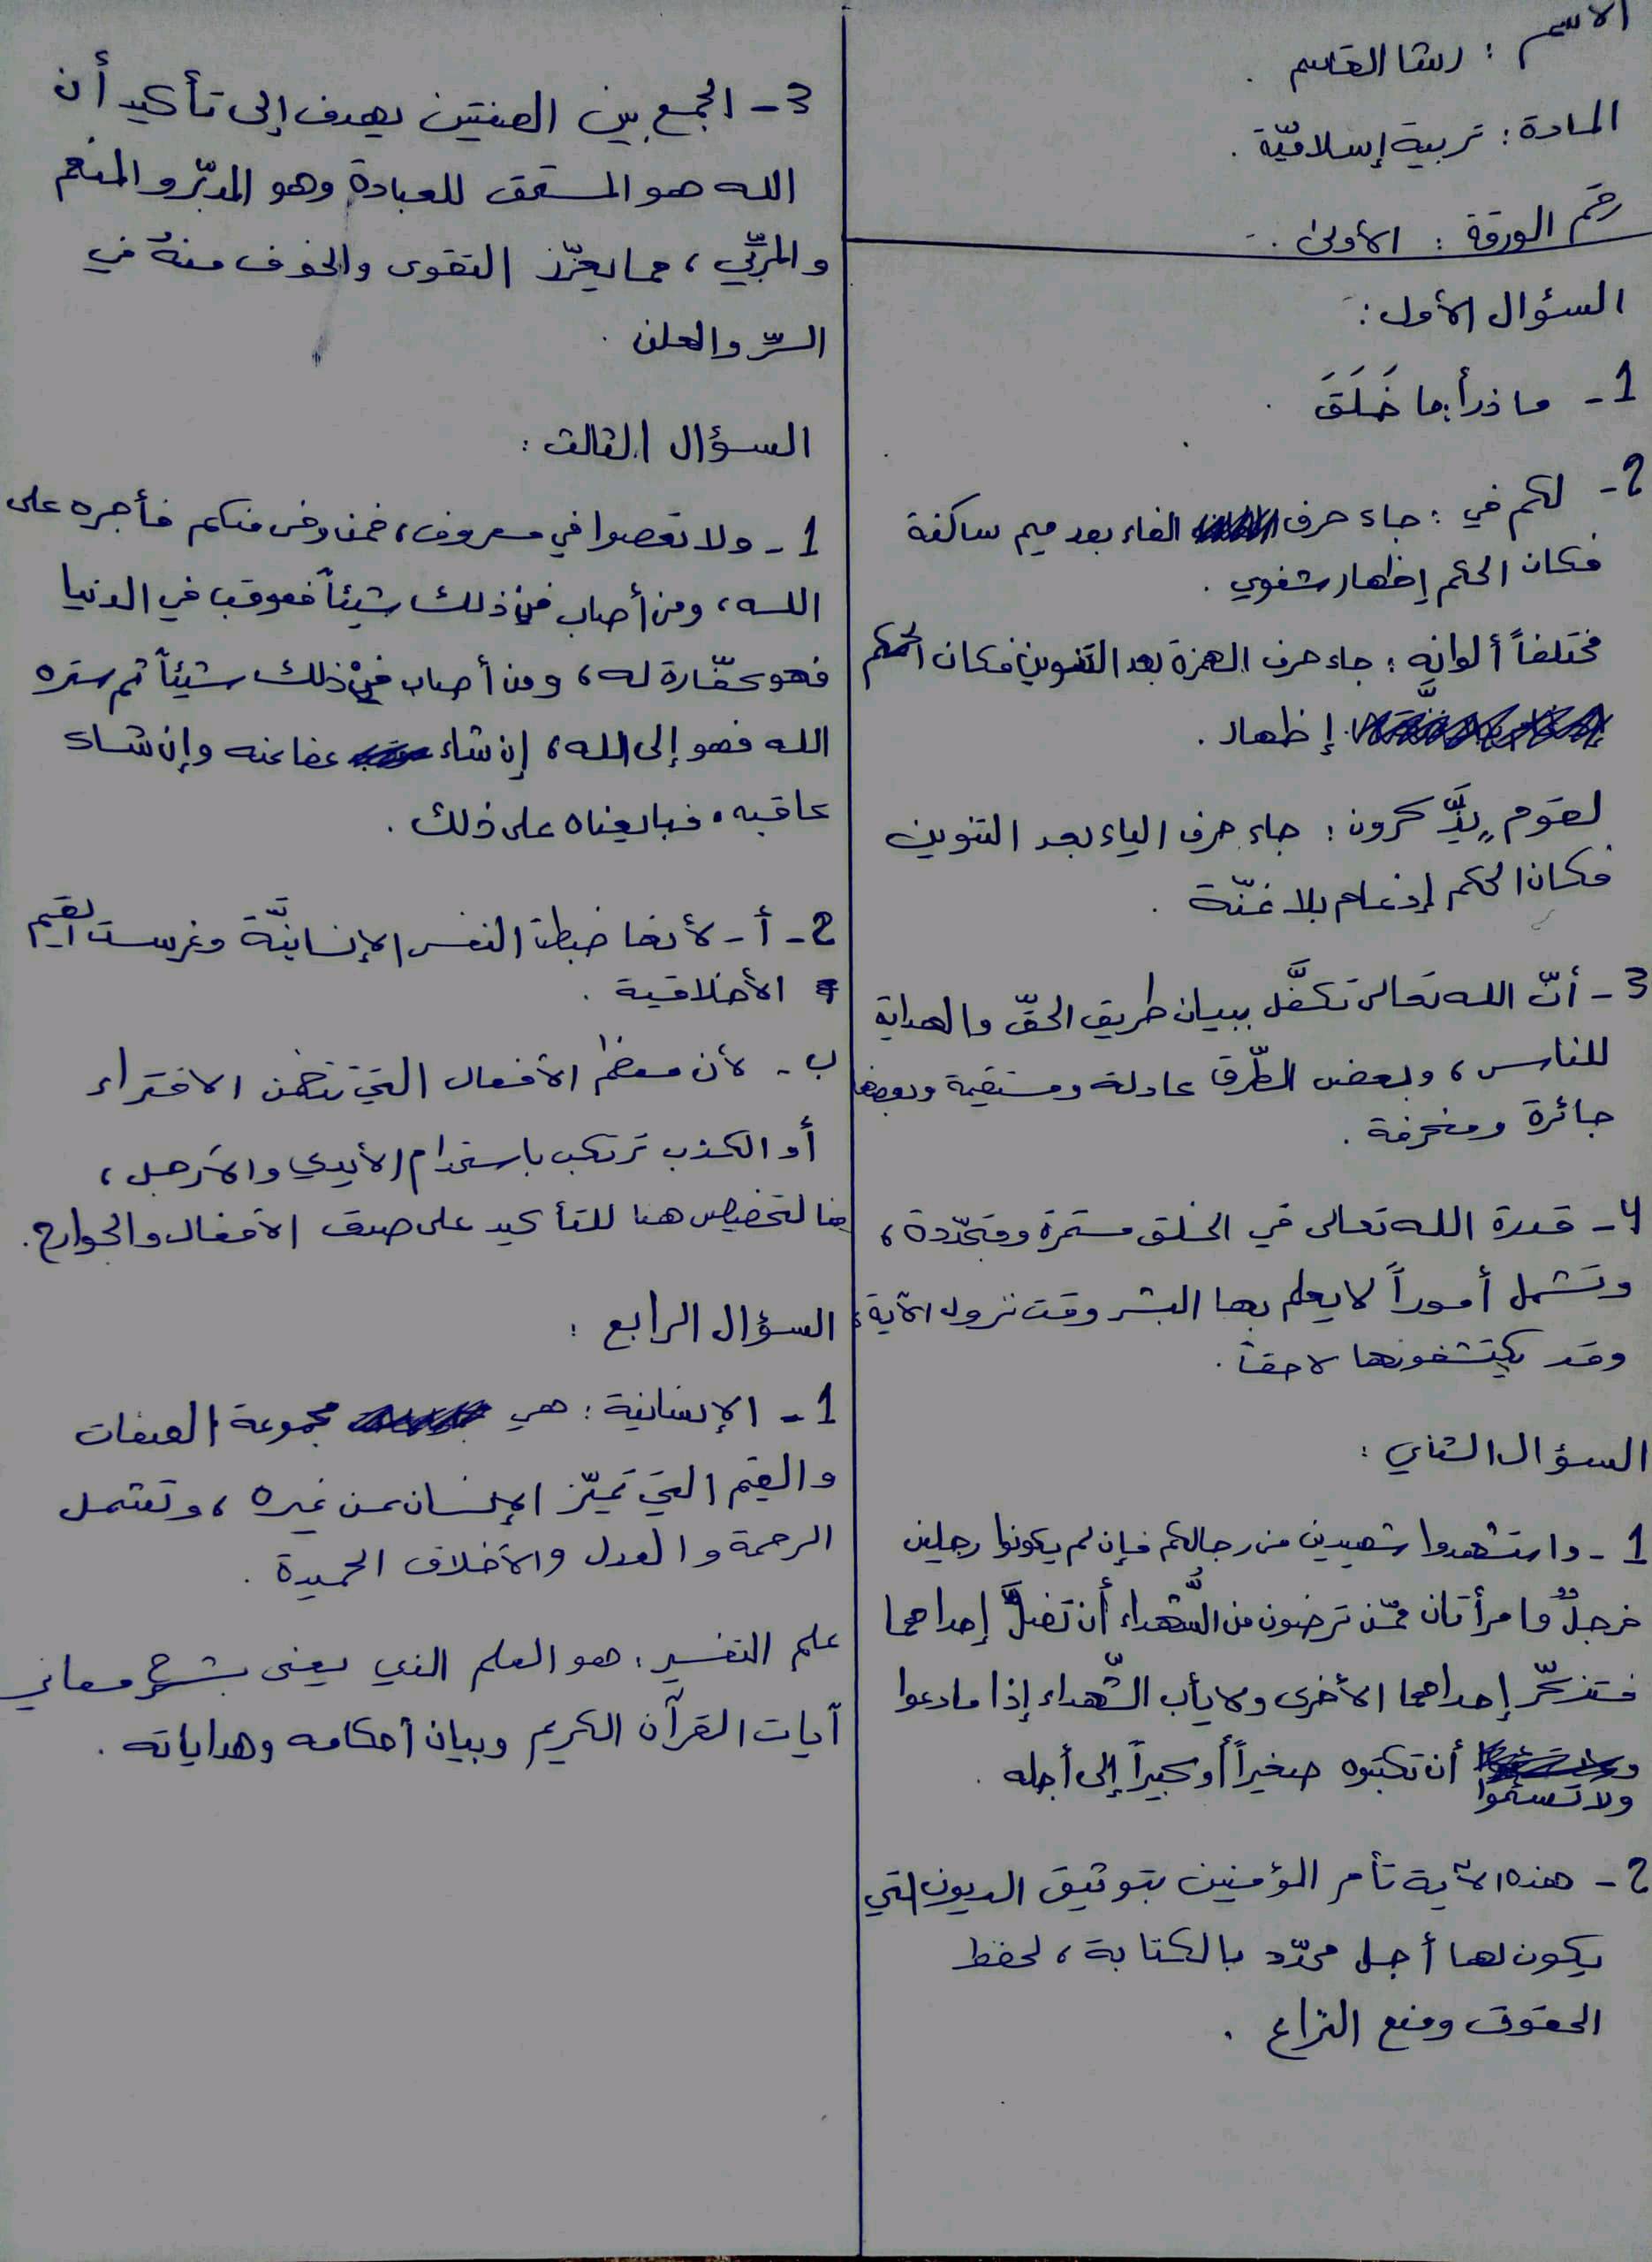 الاسم : رشا القاسم .
المادة : تربية إسلاميّة .
رقم الورقة : الأولى .
السؤال الأول :
1- ما ذرأ : ما خَلَقَ .
2- لكم في : جاء حرف الفاء بعد ميم ساكنة
فكان الحكم إظهار شفوي .
مختلفاً ألوانه : جاء حرف الهمزة بعد التنوين فكان الحكم
إظهار .
لقومٍ يذَّكرون : جاء حرف الياء بعد التنوين
فكان الحكم إدغام بلا غنّة .
3- أنّ الله تعالى تكفَّل ببيان طريق الحقّ والهداية
للناس ، وبعض الطّرق عادلة ومستقيمة وبعضها
جائرة ومنحرفة .
4- قدرة الله تعالى في الخلق مستمرة ومتجّددة ،
وتشمل أموراً لا يعلم بها البشر وقت نزول الآية ،
وقد يكتشفونها لاحقاً .
السؤال الثاني :
1- واستشهدوا شهيدين من رجالكم فإن لم يكونوا رجلين
فرجلٌ وامرأتان ممّن ترضون من الشُّهداء أن تضلَّ إحداهما
فتذكّر إحداهما الأخرى ولا يأب الشّهداء إذا ما دعوا
ولا تسئموا أن تكتبوه صغيراً أو كبيراً إلى أجله .
2- هذه الآية تأمر المؤمنين بتوثيق الديون التي
يكون لها أجل محدّد بالكتابة ، لحفظ
الحقوق ومنع النزاع .
3- الجمع بين الصفتين يهدف إلى تأكيد أن
الله هو المستحق للعبادة وهو المدبّر والمنعم
والمربِّي ، مما يعزّز التقوى والخوف منهُ في
السِّر والعلن .
السؤال الثالث :
1- ولا تعصوا في معروف ، فمن وفى منكم فأجره على
الله ، ومن أصاب من ذلك شيئاً فعوقب في الدنيا
فهو كفّارة له ، ومن أصاب من ذلك شيئاً ثم ستره
الله فهو إلى الله ، إن شاء عفا عنه وإن شاء
عاقبه . فبايعناه على ذلك .
2- أ- لأنها ضبطت النفس الإنسانيَّة وغرست القيم
الأخلاقية .
ب- لأن معظم الأفعال التي تتضمن الافتراء
أو الكذب ترتكب باستخدام الأيدي والأرجل ،
فالتخصيص هنا للتأكيد على صدق الأفعال والجوارح .
السؤال الرابع :
1- الإنسانية : هي مجموعة الصفات
والقيم التي تميّز الإنسان عن غيره ، وتشمل
الرحمة والعدل والأخلاق الحميدة .
علم التفسير : هو العلم الذي يعنى بشرح معاني
آيات القرآن الكريم وبيان أحكامه وهداياته .